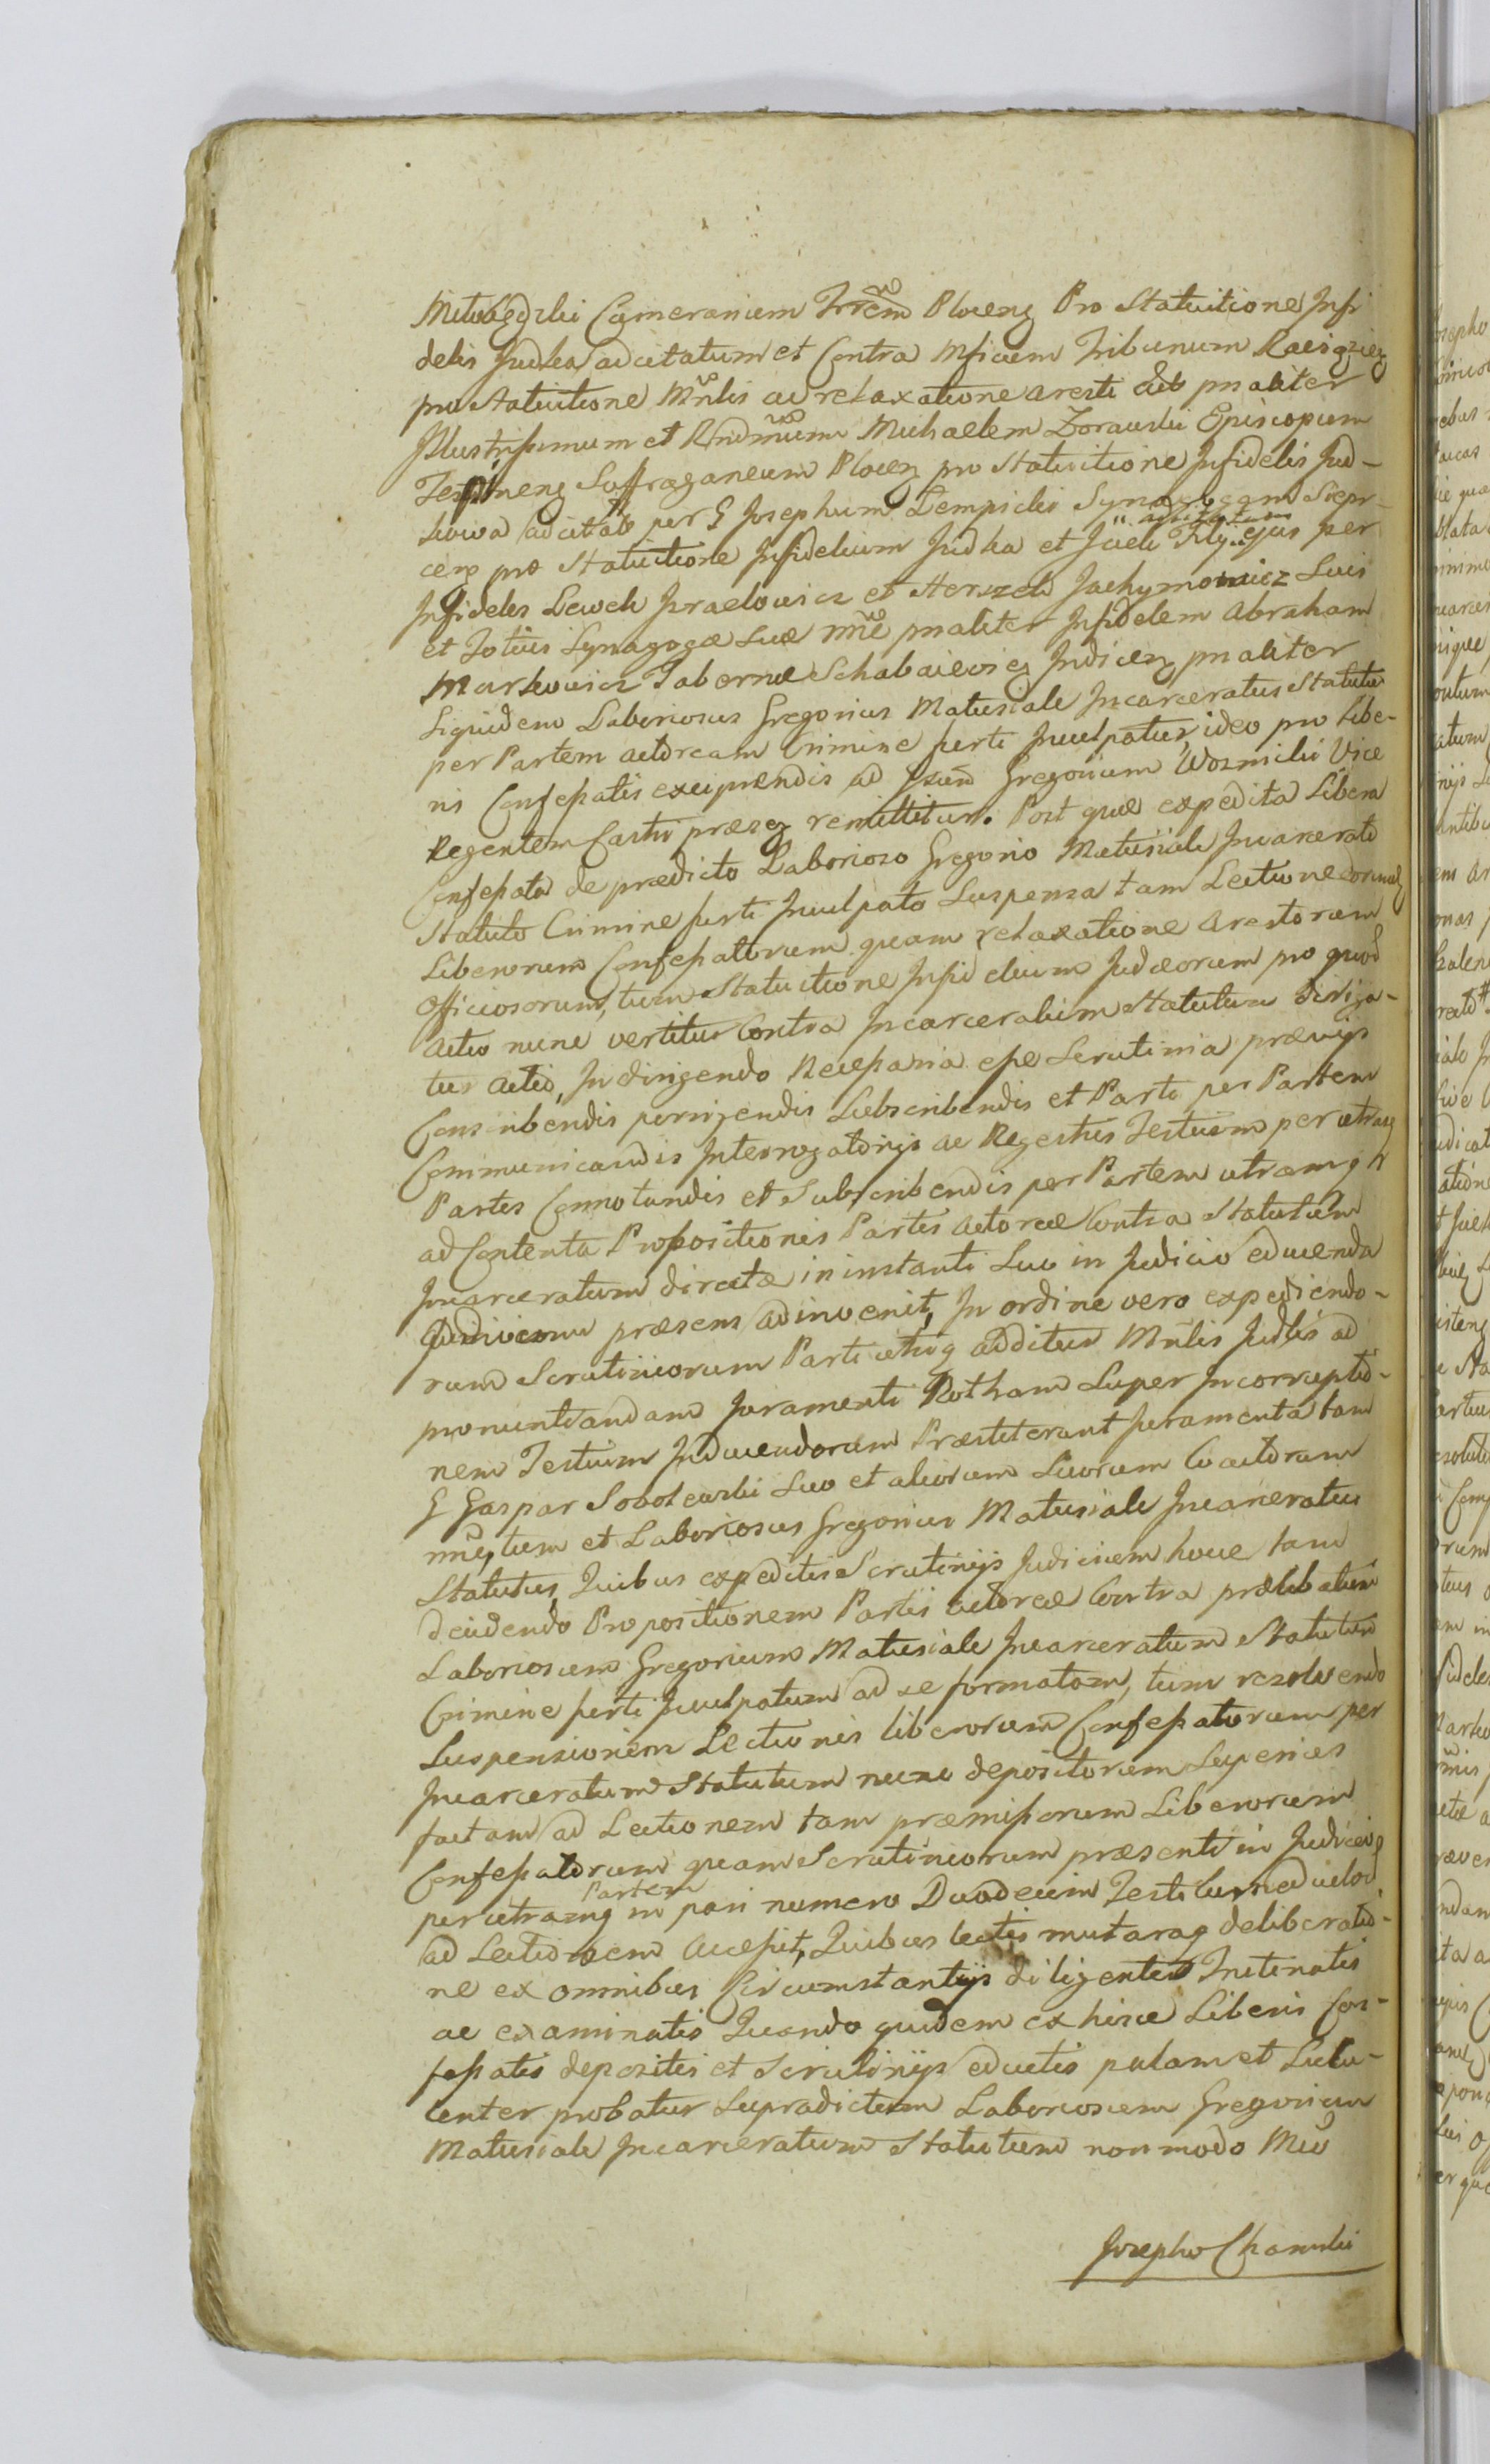 Milobędzki Camerarium Trrem Plocens Pro Statuitione Infi
delis Judka adcitatum et Contra Mficum Tribunum Raciązien
pro Statuitione Mnlis ac relaxatione aresti adcit pnaliter
Illustrissimum et Rndmum Michaelem Zorawski Episcopum
Suffraganeum Plocen pro Statuitione Infidelis Jud-
kowa adcitat per G Josephum Lempicki Synagogam Sierp-
cen pro Statuitione Infidelium Judka et Jcek Filij ejus adcitatum per
Infideles Lewek Jzraelowicz et Herszek Jachymowicz Suis
et Totius Synagogæ Suæ nne pnaliter Infidelem Abraham
Markowicz Tabernæ Schabaiewicz Judicen pnaliter
Siquidem Laboriosus Gregorius Matusiak Incarceratus Statutus
per Partem actoream Crimine furti Inculpatur, ideo pro Libe-
ris Confessatis excipiendis ad Gregorium Woznicki Vice
Regentem Castri præsen remittitur. Post quæ expedita Libera
Confessata de prædicto Laborioso Gregorio Matusiak Incarcerato
Statuto Crimine furti Inculpato Suspensa tam Lectione eorund
Liberorum Confessatorum quam relaxatione Arestorum
Officiosorum, tum Statuitione Infidelium Judæorum pro quod
actio nunc vertitur Contra Incarceratum Statutum dirigi-
tur actio, In dirigendo Necessaria esse Scrutinia prævijs
Conscribendis porrigendis Subscribendis et Parti per Partem
Communicandis Interrogatorijs ac Regestris Testium per utrasq
Partes Connotandis et Subscribendis per Partem utramq
ad Contenta Propositionis Partis Actoreæ Contra Statutum
Incarceratum directæ in instanti Suo in Judicio educenda
Judicium præsens adinvenit, In ordine vero expediendo-
rum Scrutiniorum Parti utriq additur Mnlis Judis ad
pronuntiandam Juramenti Rotham Super Incorruptio-
nem Testium Inducendorum Præstiterunt Juramenta tam
G Gaspar Sobolewski Suo et aliorum Suorum Coactorum
nne, tum et Laboriosus Gregorius Matusiak Incarceratus
Statutus, Quibus expeditis Scrutinijs Judicium hocce tam
decidendo Propositionem Partis actoreæ Contra prælibatum
Laboriosum Gregorium Matusiak Incarceratum Statutum
Crimine furti Inculpatum ad se formatam, tum resolvendo
Suspensionem Lectionis liberorum Confessatorum per
Incarceratum Statutum nunc depositorum Superius
factam ad Lectionem tam præmissorum Liberorum
Confessatorum quam Scrutiniorum præsenti in Judicio
per utramq Partem in pari numero Duodecim Testibus eductor
ad Lectionem Accessit, Quibus lectis deliberatio-
ne ex omnibus Circumstantijs diligenter Trutinatis
ac examinatis Quando quidem ex hisce Liberis Con-
fessatis depositis et Scrutinijs eductis palam et Lucu-
lenter probatur Supradictum Laboriosum Gregorium
Matusiak Incarceratum Statutum non modo
Josepho Chamski